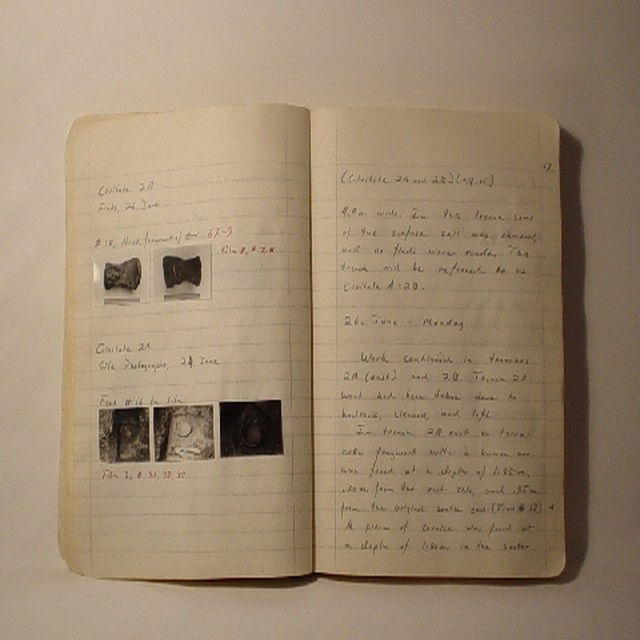 Civitate 2A
Finds, 26 June
#12, Head, fragment of
Film
Civitate 2A
Site Photographs, 24 June
Find #16 In Situ
Film
17.
(Civitate 2A and 2B)
wide. In this trench some
of the surface soil was removed,
and no finds were made. This
trench will be referred to as
Civitate A-2B.
26. June - Monday
Work continued in trenches
2A (east) and 2B. Trench 2A
west had been taken down to
bedrock, cleaned, and left.
In trench 2A east a terra
cotta fragment with a human
was found at a depth of 1.85m,
from the east side, and .95m
from the original south end. (Find #12)
A piece of cornice was found at
a depth of 1.80m in the sector